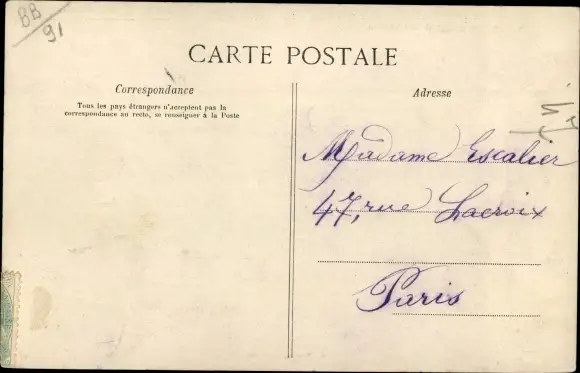 BB
91
CARTE POSTALE
Correspondance
Tous les pays étrangers n'acceptent pas la
correspondance au recto, se renseigner à la Poste
Adresse
Madame Escalier
47, rue Lacroix
Paris